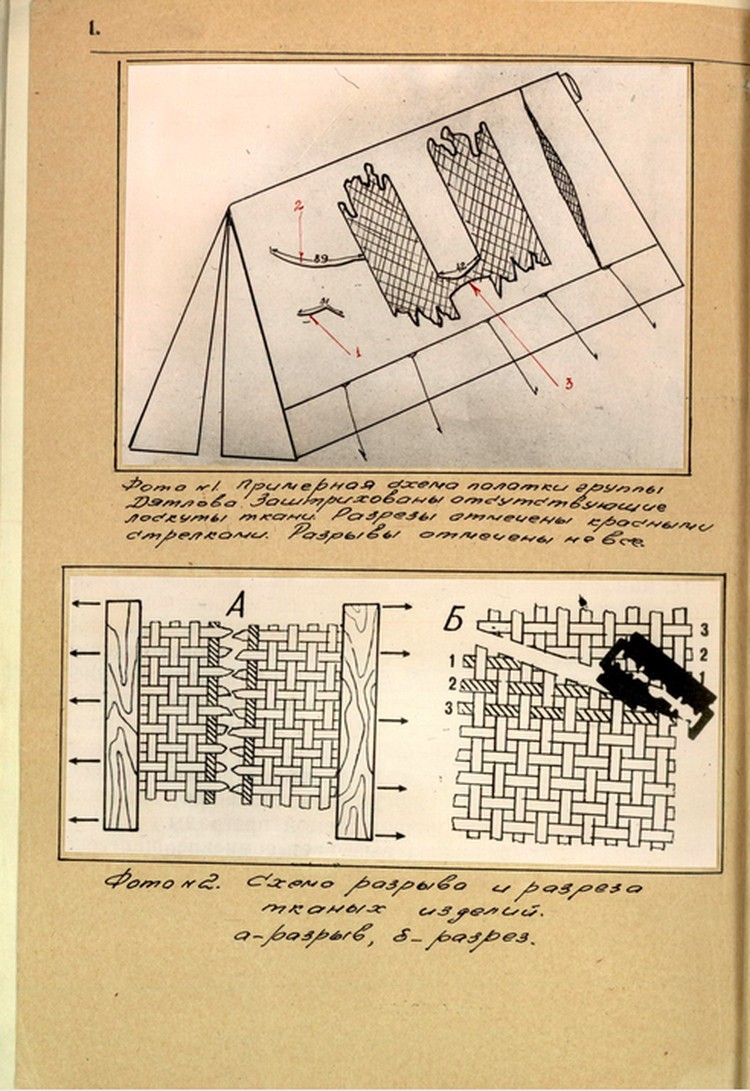 1.
2
89
42
31
1
3
Фото №1. Примерная схема палатки группы
Дятлова. Заштрихованы отсутствующие
лоскуты ткани. Разрезы отмечены красными
стрелками. Разрывы отмечены не все.
А
Б
3
2
1
1
2
3
Фото №2. Схема разрыва и разреза
тканых изделий.
а-разрыв, б-разрез.